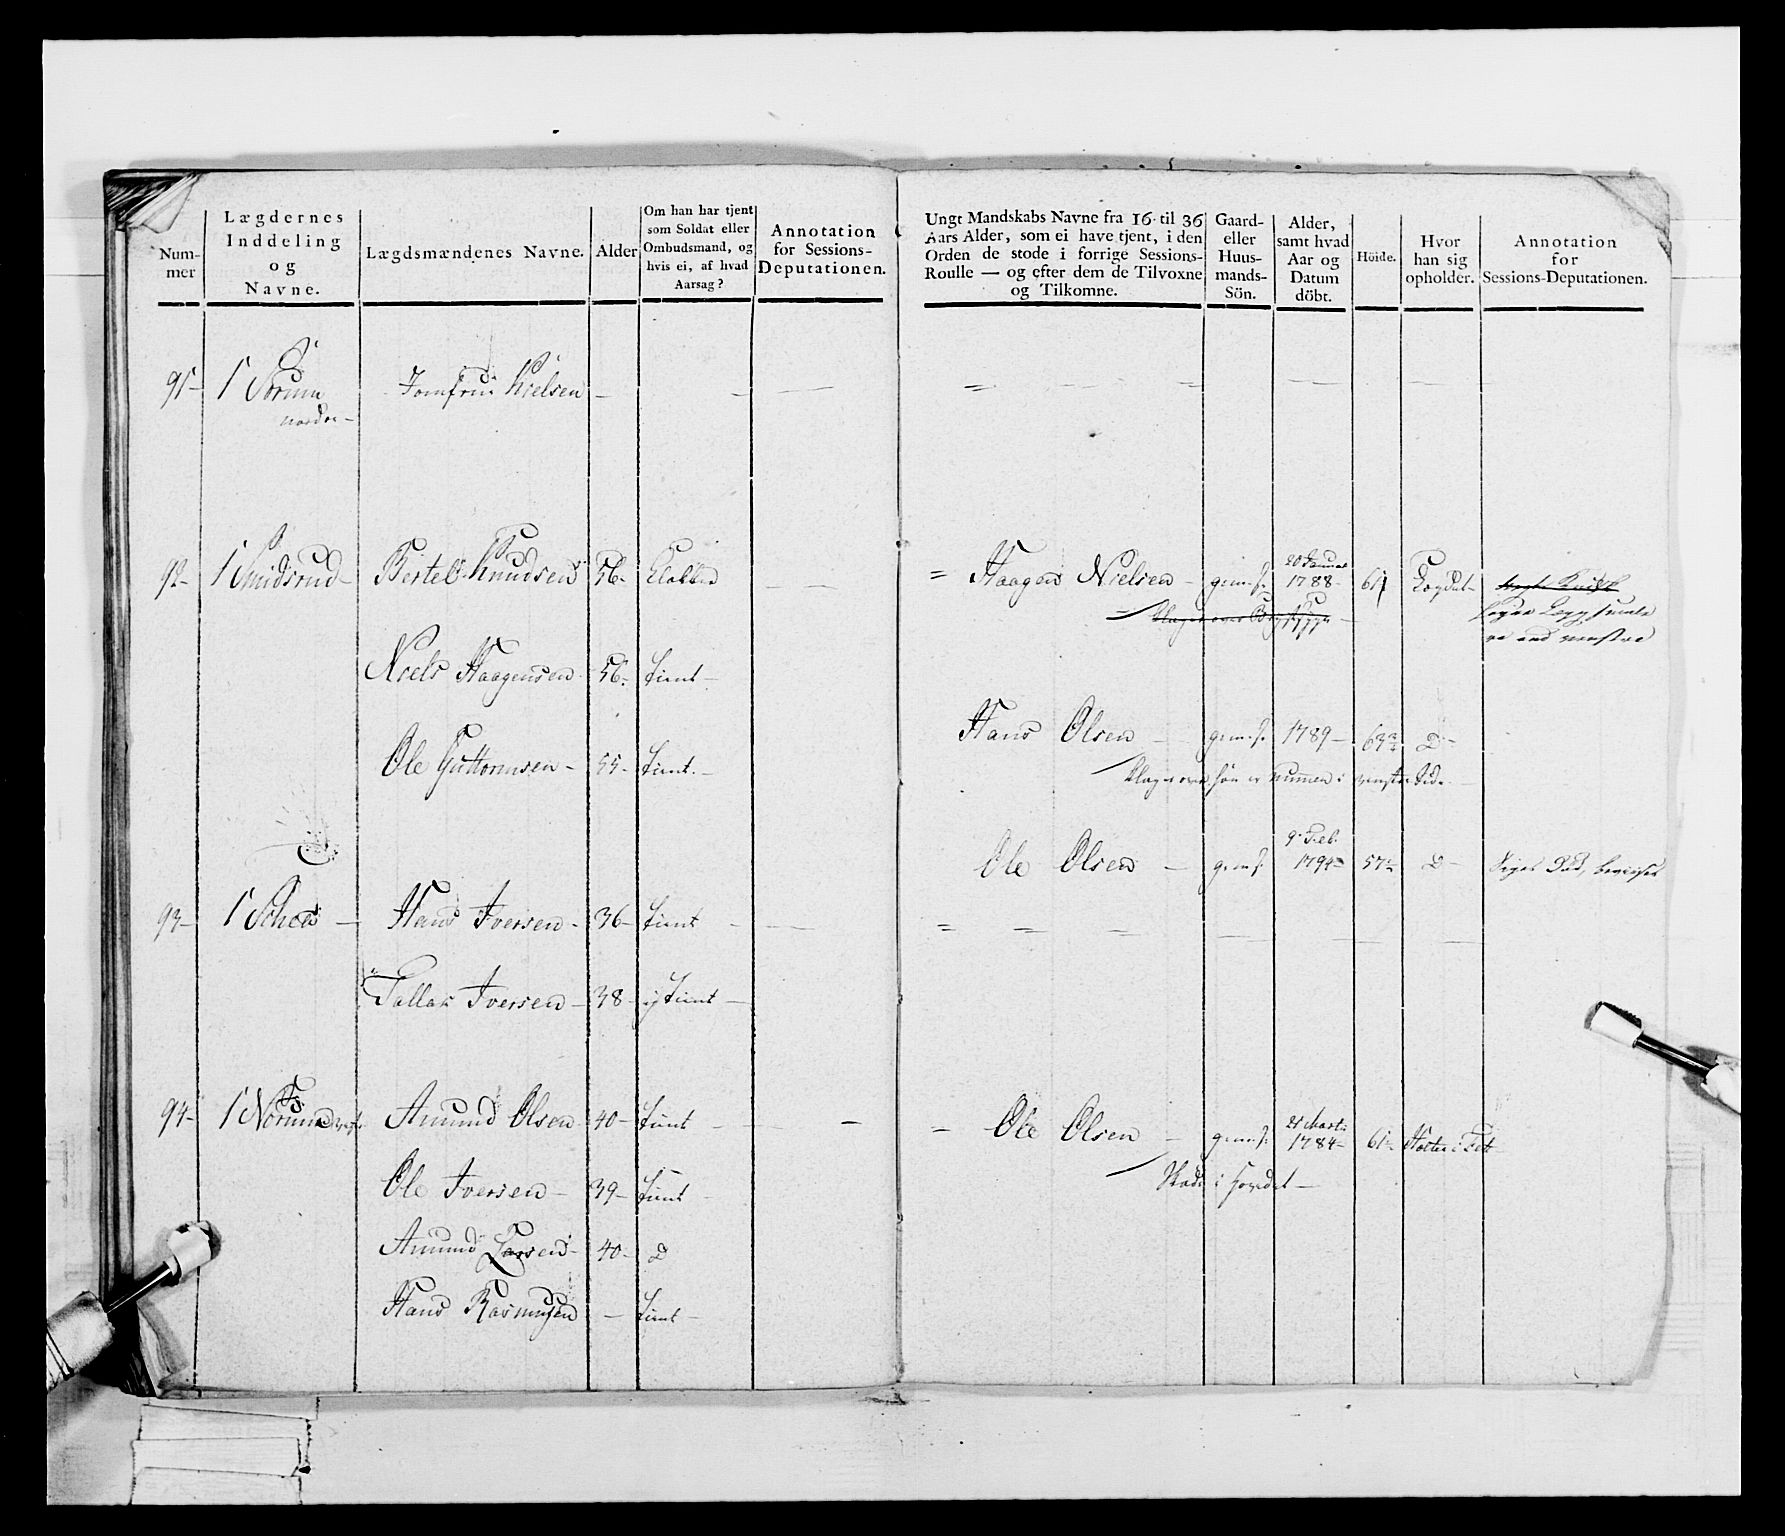 Num-
mer
Lægdernes
Inddeling
og
Navne.
Lægdsmændenes Navne.
Alder
Om han har tjent
som Soldat eller
Ombudsmand, og
hvis ei, af hvad
Aarsag?
Annotation
for Sessions-
Deputationen.
Ungt Mandskabs Navne fra 16 til 36
Aars Alder, som ei have tjent, i den
Orden de stode i forrige Sessions-
Roulle — og efter dem de Tilvoxne
og Tilkomne.
Gaard-
eller
Huus-
mands-
Sön.
Alder,
samt hvad
Aar og
Datum
döbt.
Höide.
Hvor
han sig
opholder.
Annotation
for
Sessions-Deputationen.
91- 1 Sörum Jomfrue Nielsen -
nordre-
92- 1 Smidsrud- Bertel Knudsen 56-
= Haagen Nielsen - grm.s. 20 Januar 1788- 61
Niels Haagensen 56- tient-
Hans Olsen - grm.s. 1789- 63 D-
Ole Guttormsen- 55- tient.-
Klager over hön er nummen i venstre Side
Ole Olsen - grm.s. 9. Feb. 1794- 57 D-
93- 1 - Hans Iversen- 36- tient
Tallak Iversen- 38- ej tient-
94- 1 Amund Olsen 40- tient -
- Ole Olsen - grm.s. 21 Marti 1784- 61- Holter i Fet
Ole Iversen- 39- tient
Skade i Hovedet-
Amund Larsen- 40- D
Hans Rasmusen - tient-